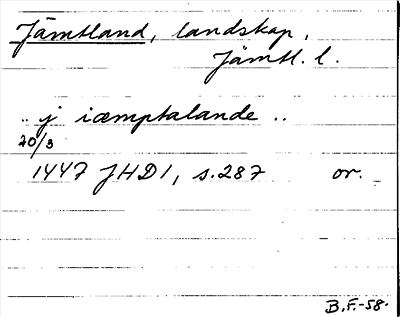 Jämtland, landskap,
Jämtl. l.
.. j iæmptalande ..
20/3
1447 JHD1, s.287 or.
B.F.-58.